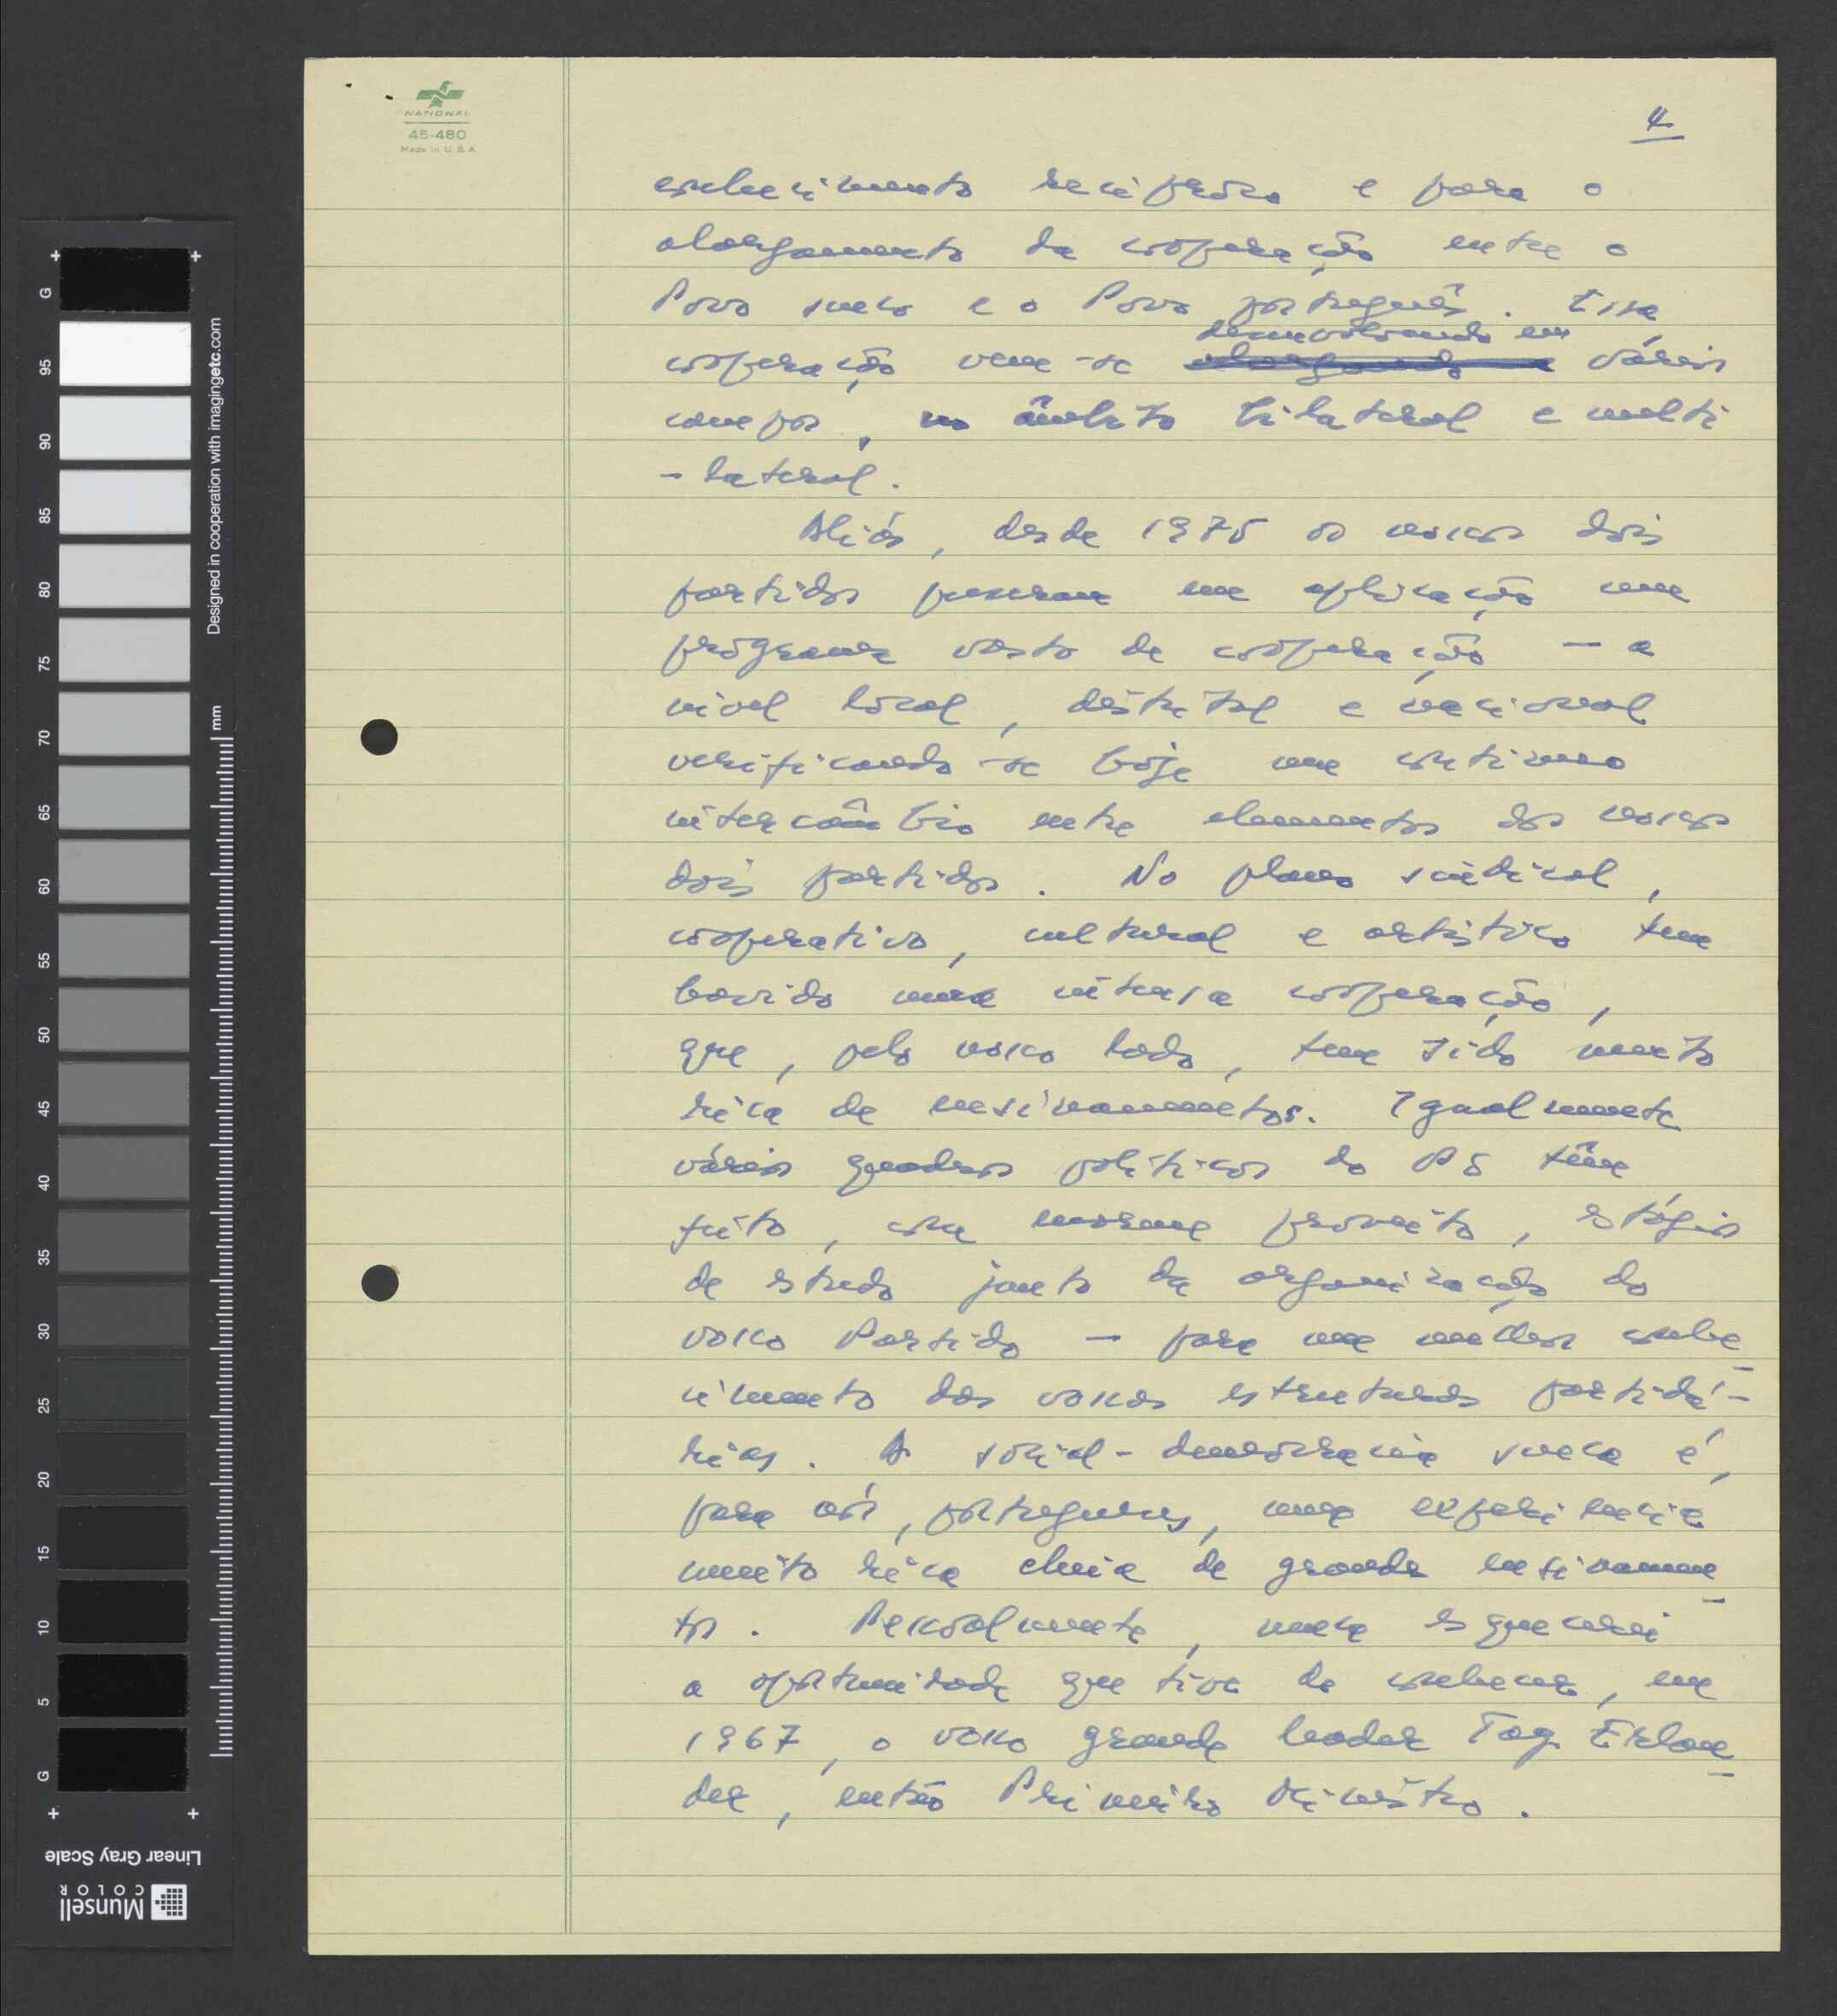 4
conhecimento recíproco e para o
alargamento da cooperação entre o
Povo sueco e o Povo português. Essa
desenvolvendo em
cooperação vem-se alargando a vários
campos, no âmbito bilateral e multi
-lateral.
Aliás, desde 1975 os nossos dois
partidos puseram em aplicação um
programa vasto de cooperação — a
nível local, distrital e nacional
verificando-se hoje um contínuo
intercâmbio entre elementos dos nossos
dois partidos. No plano sindical,
cooperativo, cultural e artístico tem
havido uma intensa cooperação,
que, pelo nosso lado, tem sido muito
rica de ensinamentos. Igualmente
vários quadros políticos do PS têm
feito, com enorme proveito, estágios
de estudo junto da organização do
vosso Partido — para um melhor conhe-
cimento das vossas estruturas partidá-
rias. A social-democracia sueca é,
para nós, portugueses, uma experiência
muito rica cheia de grandes ensinamen-
tos. Pessoalmente, nunca esquecerei
a oportunidade que tive de conhecer, em
1967, o vosso grande leader Tag Erlan-
der, então Primeiro Ministro.
NATIONAL
45-480
Made in U.S.A.
Designed in cooperation with imagingetc.com
mm
G
95
90
85
80
75
70
65
60
55
50
45
40
35
30
25
20
15
10
5
G
Linear Gray Scale
Munsell
COLOR